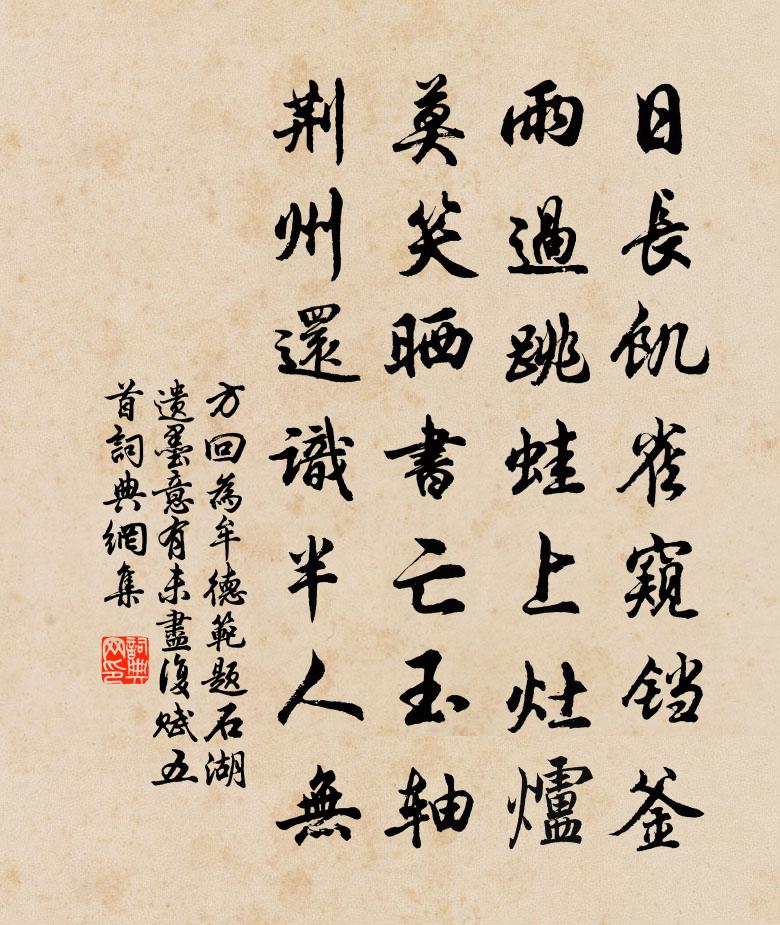 日長飢雀窺铛釜
雨過跳蛙上灶爐
莫笑晒書亡玉轴
荆州還識半人無
方回為牟德範題石湖
遺墨意有未盡復赋五
首詞典網集
詞典网印